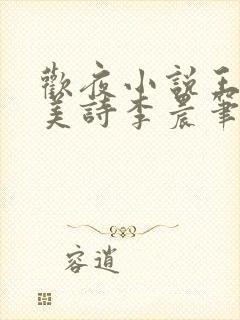 歡夜小說王
美詩李晨筆
容逍